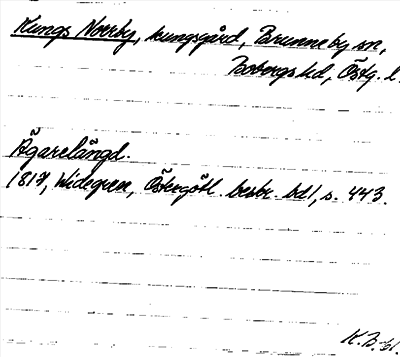 Kungs Norrby, kungsgård, Brunneby sn,
Bobergs hd, Östg. l.
Ägarelängd.
1817, Widegren, Östergötl. beskr. bd 1, s. 443.
K.B.-61.